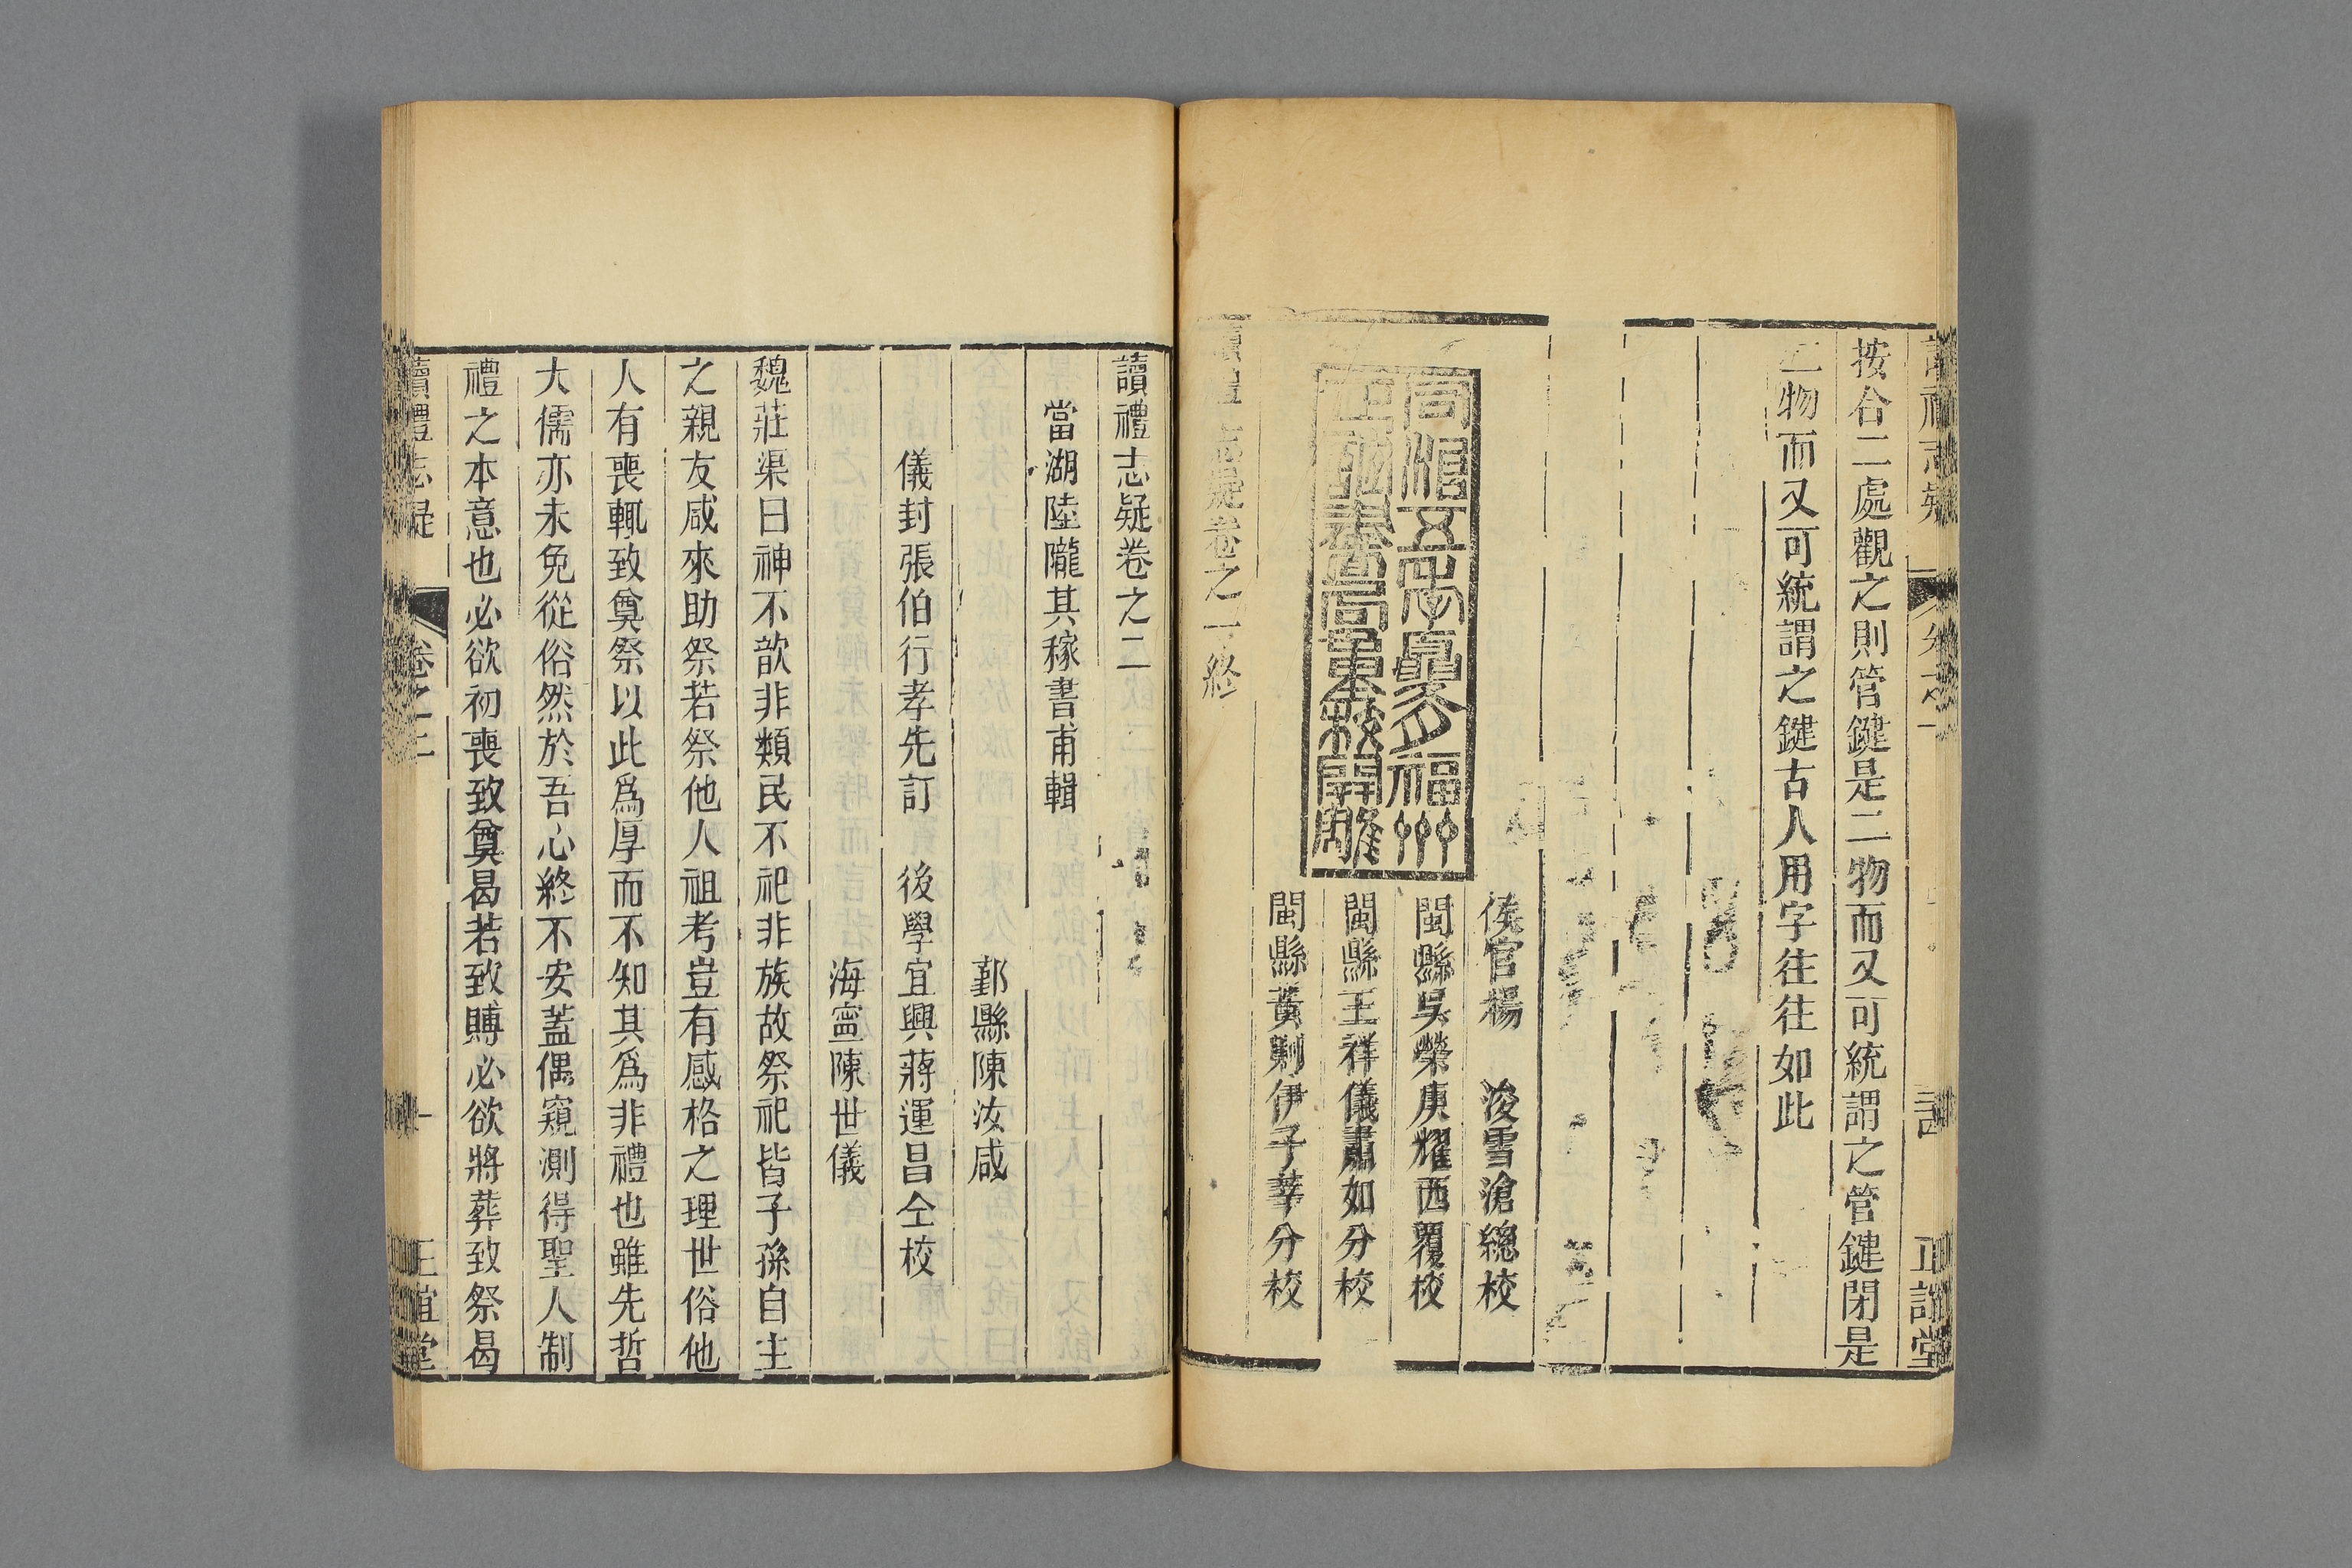 按合二處觀之則管鍵是二物而又可統謂之管鍵閉是
二物而又可統謂之鍵古人用字往往如此
侯官楊　浚雪滄總校
同治五年夏月福州
正誼書局重校開雕
閩縣吳榮庚耀西覆校
閩縣王祥儀肅如分校
閩縣黃則伊子莘分校
讀禮志疑卷之一終
讀禮志疑卷之二
當湖陸隴其稼書甫輯
鄞縣陳汝咸
儀封張伯行孝先訂　後學宜興蔣運昌仝校
海寧陳世儀
魏莊渠曰神不歆非類民不祀非族故祭祀皆子孫自主
之親友咸來助祭若祭他人祖考豈有感格之理世俗他
人有喪輒致奠祭以此爲厚而不知其爲非禮也雖先哲
大儒亦未免從俗然於吾心終不安蓋偶窺測得聖人制
禮之本意也必欲初喪致奠曷若致賻必欲將葬致祭曷
讀禮志疑　卷之二　一　正誼堂